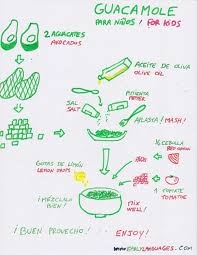 GUACAMOLE
PARA NIÑOS / FOR KIDS
2 AGUACATES
AVOCADOS
ACEITE DE OLIVA
OLIVE OIL
PIMIENTA
PEPPER
SAL
SALT
¡APLASTA! MASH!
½ CEBOLLA
RED ONION
GOTAS DE LIMÓN
LEMON DROPS
1 TOMATE
TOMATOE
¡MÉZCLALO
BIEN!
MIX
WELL!
¡BUEN PROVECHO!
ENJOY!
www.EARLYLANGUAGES.com